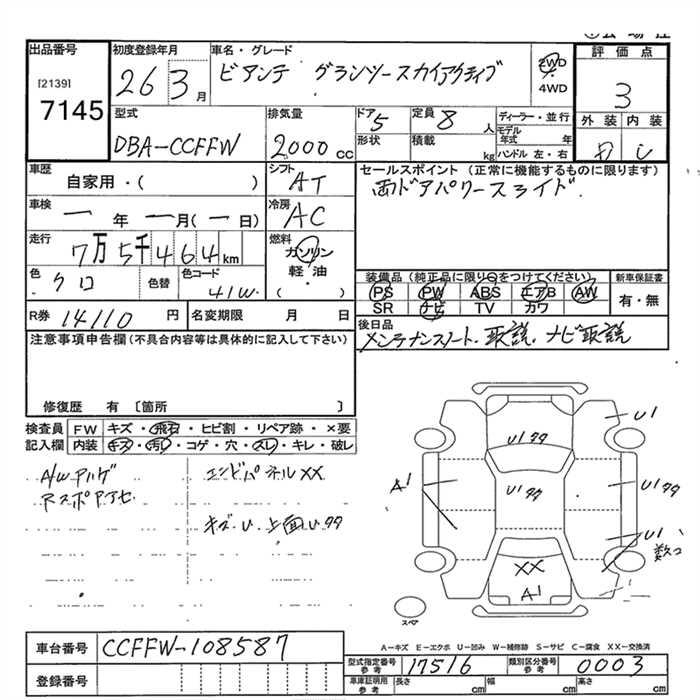 出品番号 初度登録年月 車名・グレード 評価点
[2139] 7145
26 3月 ビアンテ グランツースカイアクティブ 2WD 4WD 3
型式 排気量 ドア 5 定員 8人 ディーラー・並行 外装 内装
形状 積載 kg モデル年式 年
DBA-CCFFW 2000cc ハンドル 左・右
車歴 シフト セールスポイント (正常に機能するものに限ります)
自家用・( ) AT 両ドアパワースライド.
車検 一年 一月(一日) 冷房 AC
走行 7万5千464km 燃料 ガソリン
軽・油
( )
色 クロ 色替 色コード 41W 装備品(純正品に限り○をつけてください) 新車保証書
PS PW ABS エアB AW 有・無
SR ナビ TV カワ
R券 14110円 名変期限 月 日 後日品
メンテナンスノート.取説.ナビ取説
注意事項申告欄(不具合内容等は具体的に記入して下さい)
修復歴 有 〔箇所 〕
検査員 FW キズ・飛石・ヒビ割・リペア跡・×要
記入欄 内装 キズ・汚レ・コゲ・穴・スレ・キレ・破レ
A/Wハゲ エンドパネルXX
RスポアトセUキズ.U.上面Uタタ
U1
U1タタ
A1 U1タタ U1タタ
U1 数コ
XX
A1
スペア
A―キズ E―エクボ U―凹み W―補修跡 S―サビ C―腐食 XX―交換済
車台番号 CCFFW-108587
型式指定番号 参考 17516 類別区分番号 参考 0003
登録番号 車庫証明用 参考 長さ cm 幅 cm 高さ cm